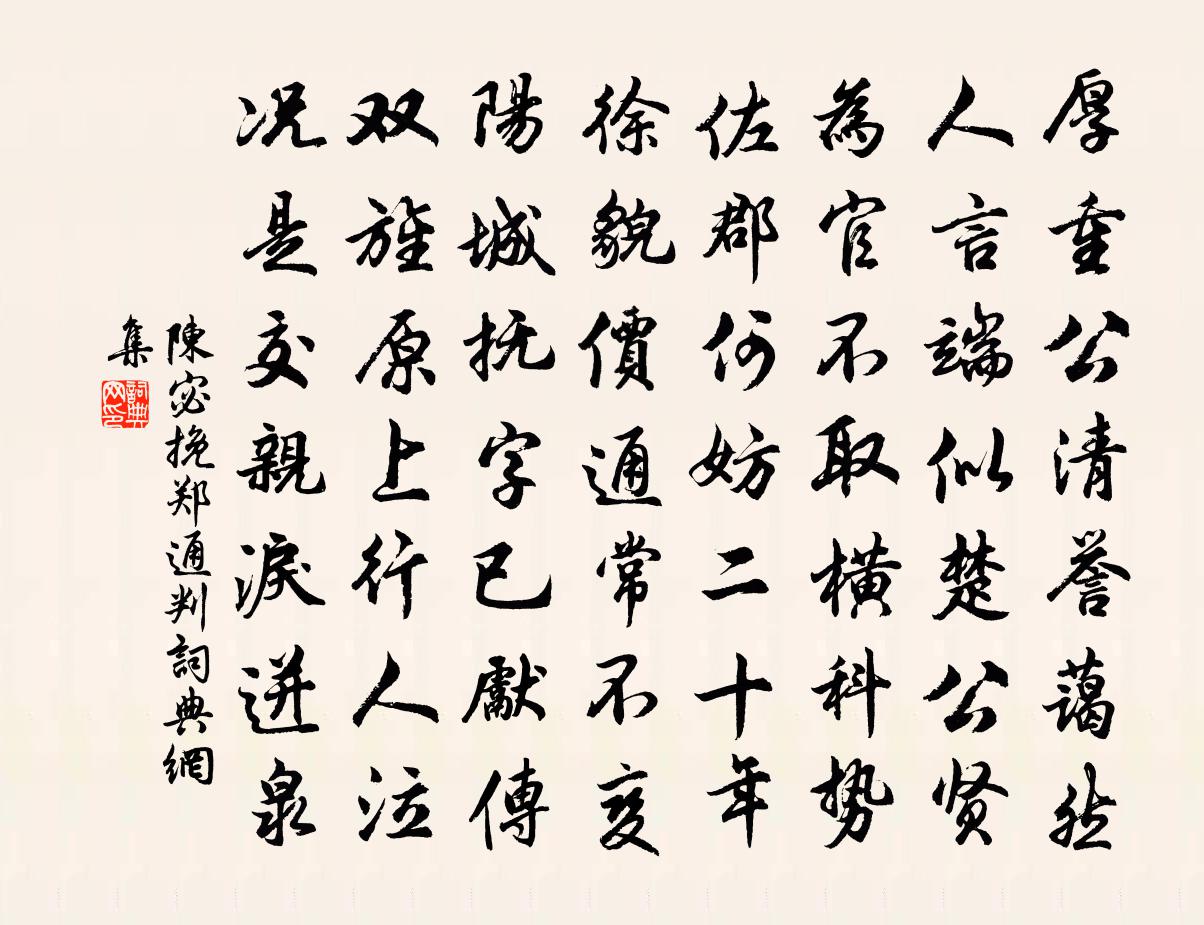 厚重公清誉蔼然
人言端似楚公贤
為官不取横科势
佐郡何妨二十年
徐貌價通常不变
陽城抚字已獻傳
双旌原上行人泣
况是交親淚迸泉
陳宓挽郑通判詞典網
集
詞典网印